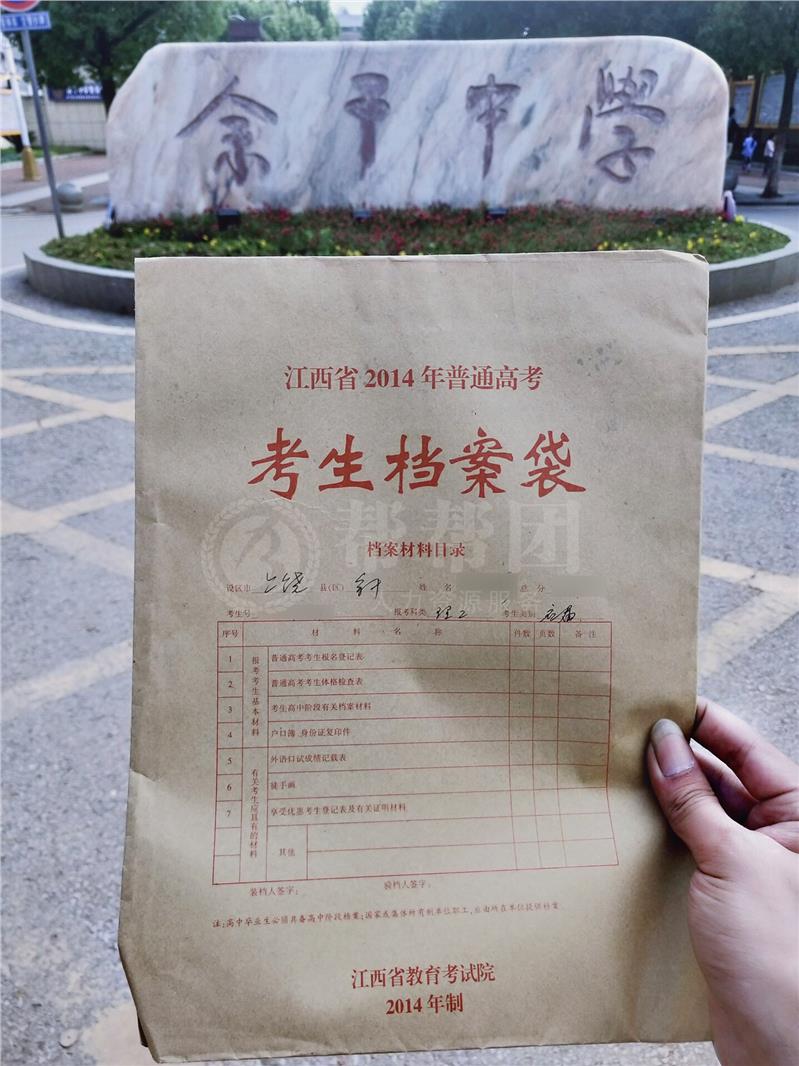 余干中學
江西省2014年普通高考
考生档案袋
帮帮团
档案材料目录
设区市 上饶 县(区) 余干 姓名 总分
考生号 报考科类 理工 考生类别 应届
序号 材料名称 件数 页数 备注
报考考生基本材料
1 普通高考考生报名登记表
2 普通高考考生体格检查表
3 考生高中阶段有关档案材料
4 户口簿、身份证复印件
有关考生应具有的材料
5 外语口试成绩记载表
6 徒手画
7 享受优惠考生登记表及有关证明材料
其他
装档人签字: 验档人签字:
注:高中毕业生必须具备高中阶段档案;国家或集体所有制单位职工,应由所在单位提供档案
江西省教育考试院
2014年制